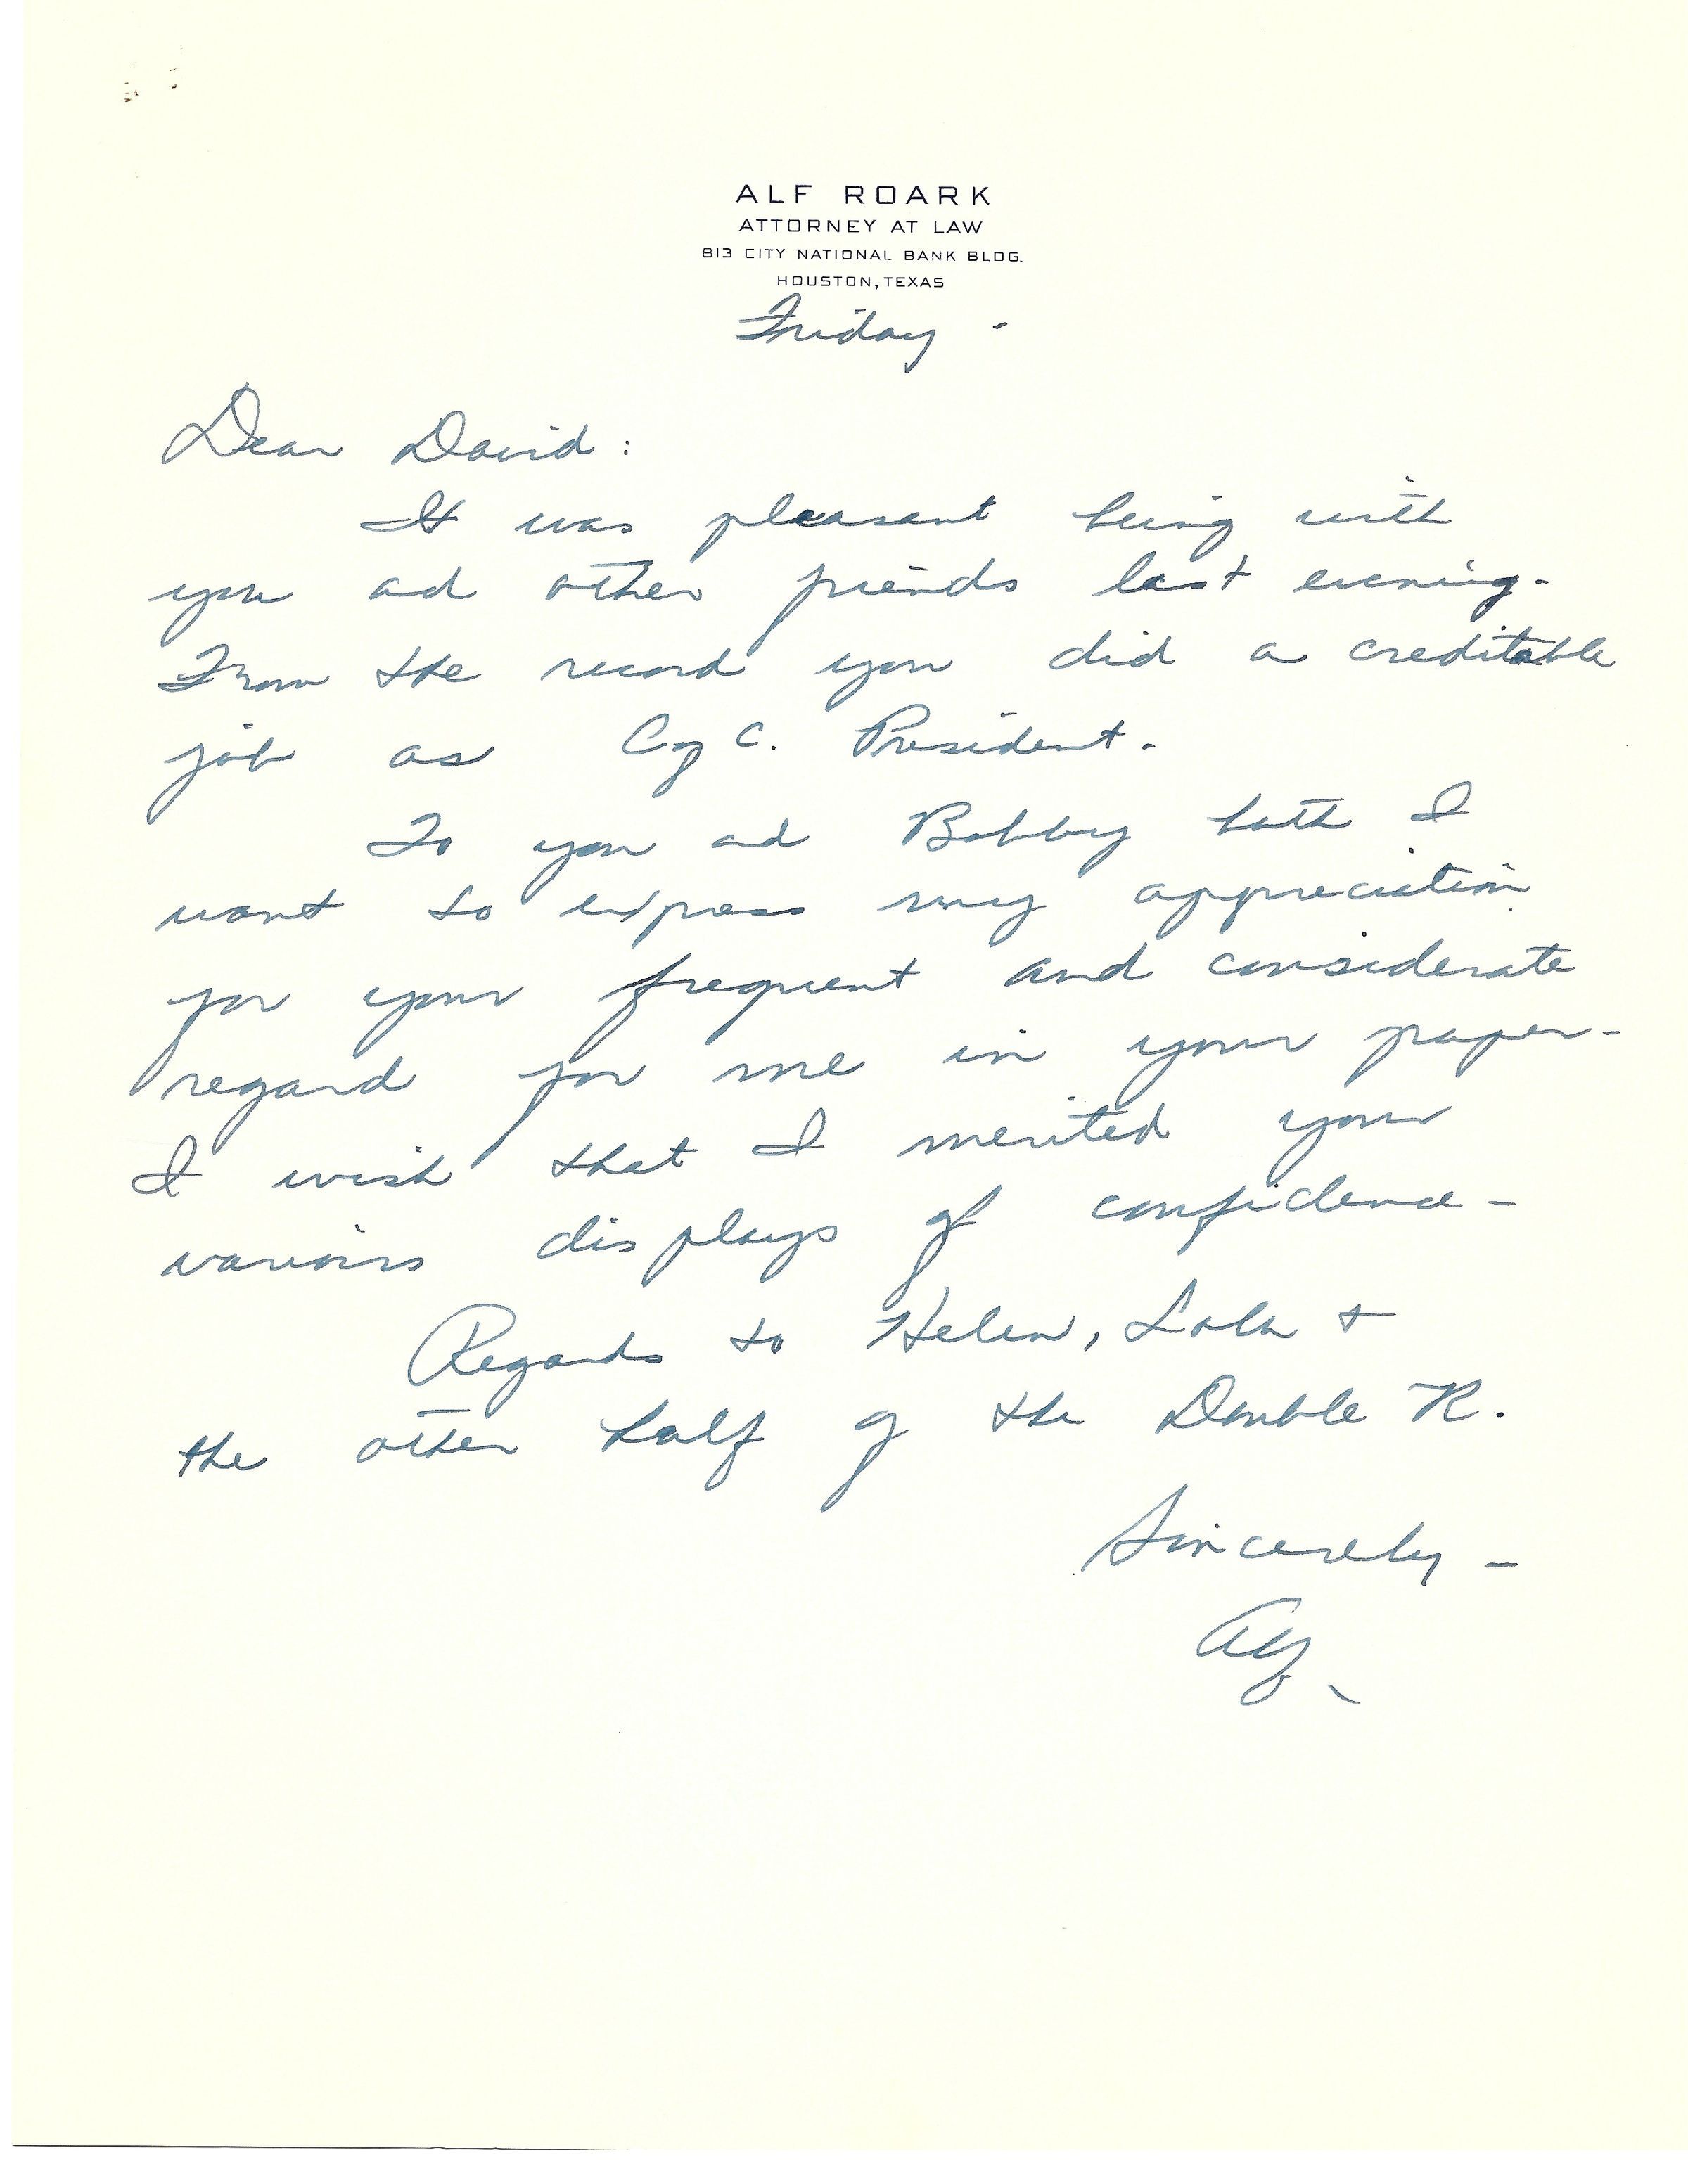 ALF ROARK
ATTORNEY AT LAW
813 CITY NATIONAL BANK BLDG.
HOUSTON, TEXAS
Friday -
Dear David:
It was pleasant being with
you ad other friends last evening.
From the record you did a creditable
job as C of C. President.
To you ad Bobby both I
want to express my appreciation
for your frequent and considerate
regard for me in your paper-
I wish that I merited your
various displays of confidence-
Regards to Helen, Lola +
the other half of the Double R.
Sincerely -
Alf